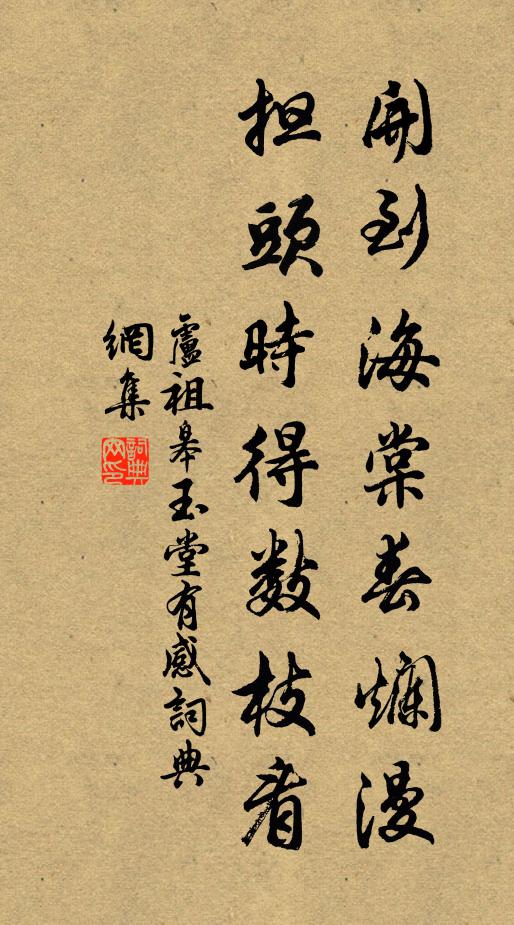 開到海棠春爛漫
担頭時得數枝看
盧祖皋玉堂有感詞典
網集
詞典
网印